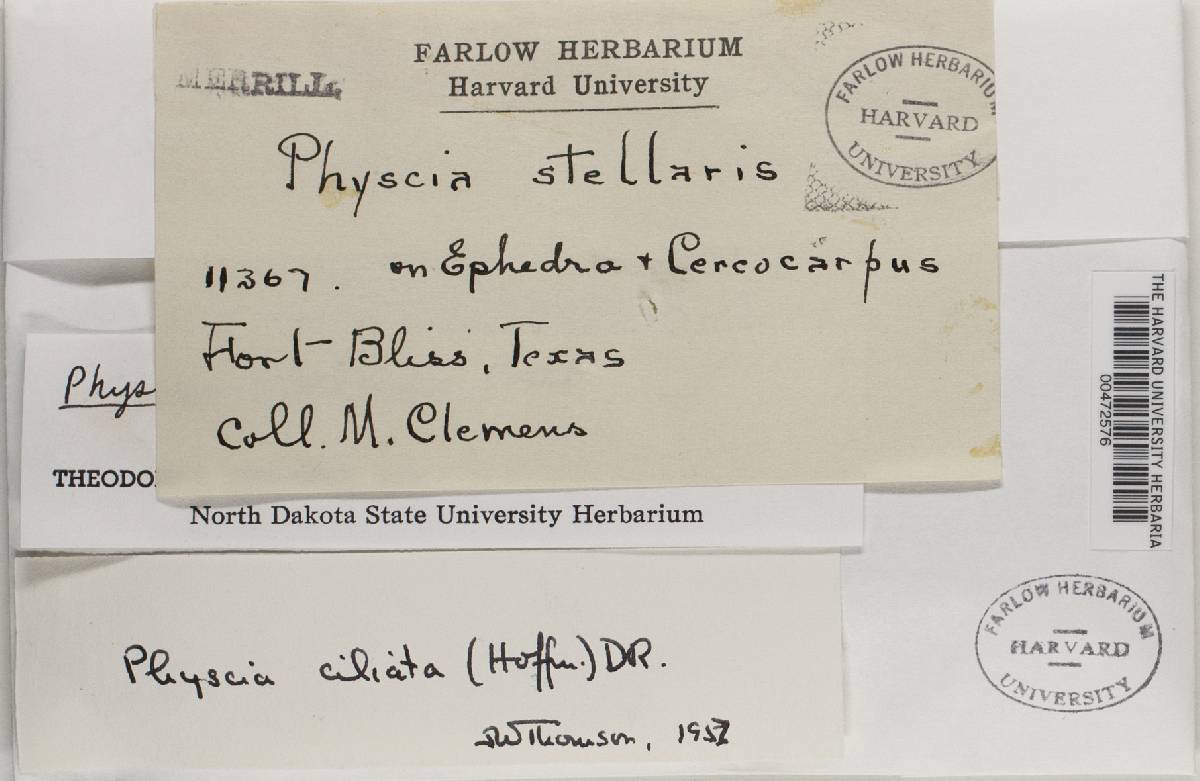 MERRILL
FARLOW HERBARIUM
Harvard University
FARLOW HERBARIUM
HARVARD
UNIVERSITY
Physcia stellaris
11367. on Ephedra + Cercocarpus
Fort Bliss, Texas
Coll. M. Clemens
Phys
THEODO
North Dakota State University Herbarium
Physcia ciliata (Hoffm.) DR.
JWThomson, 1957
THE HARVARD UNIVERSITY HERBARIA
00472576
FARLOW HERBARIUM
HARVARD
UNIVERSITY